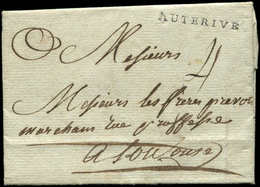 AUTERIVE
4
Mesieurs
Mesieurs les freres prevos
marchans rue
a Toulouse